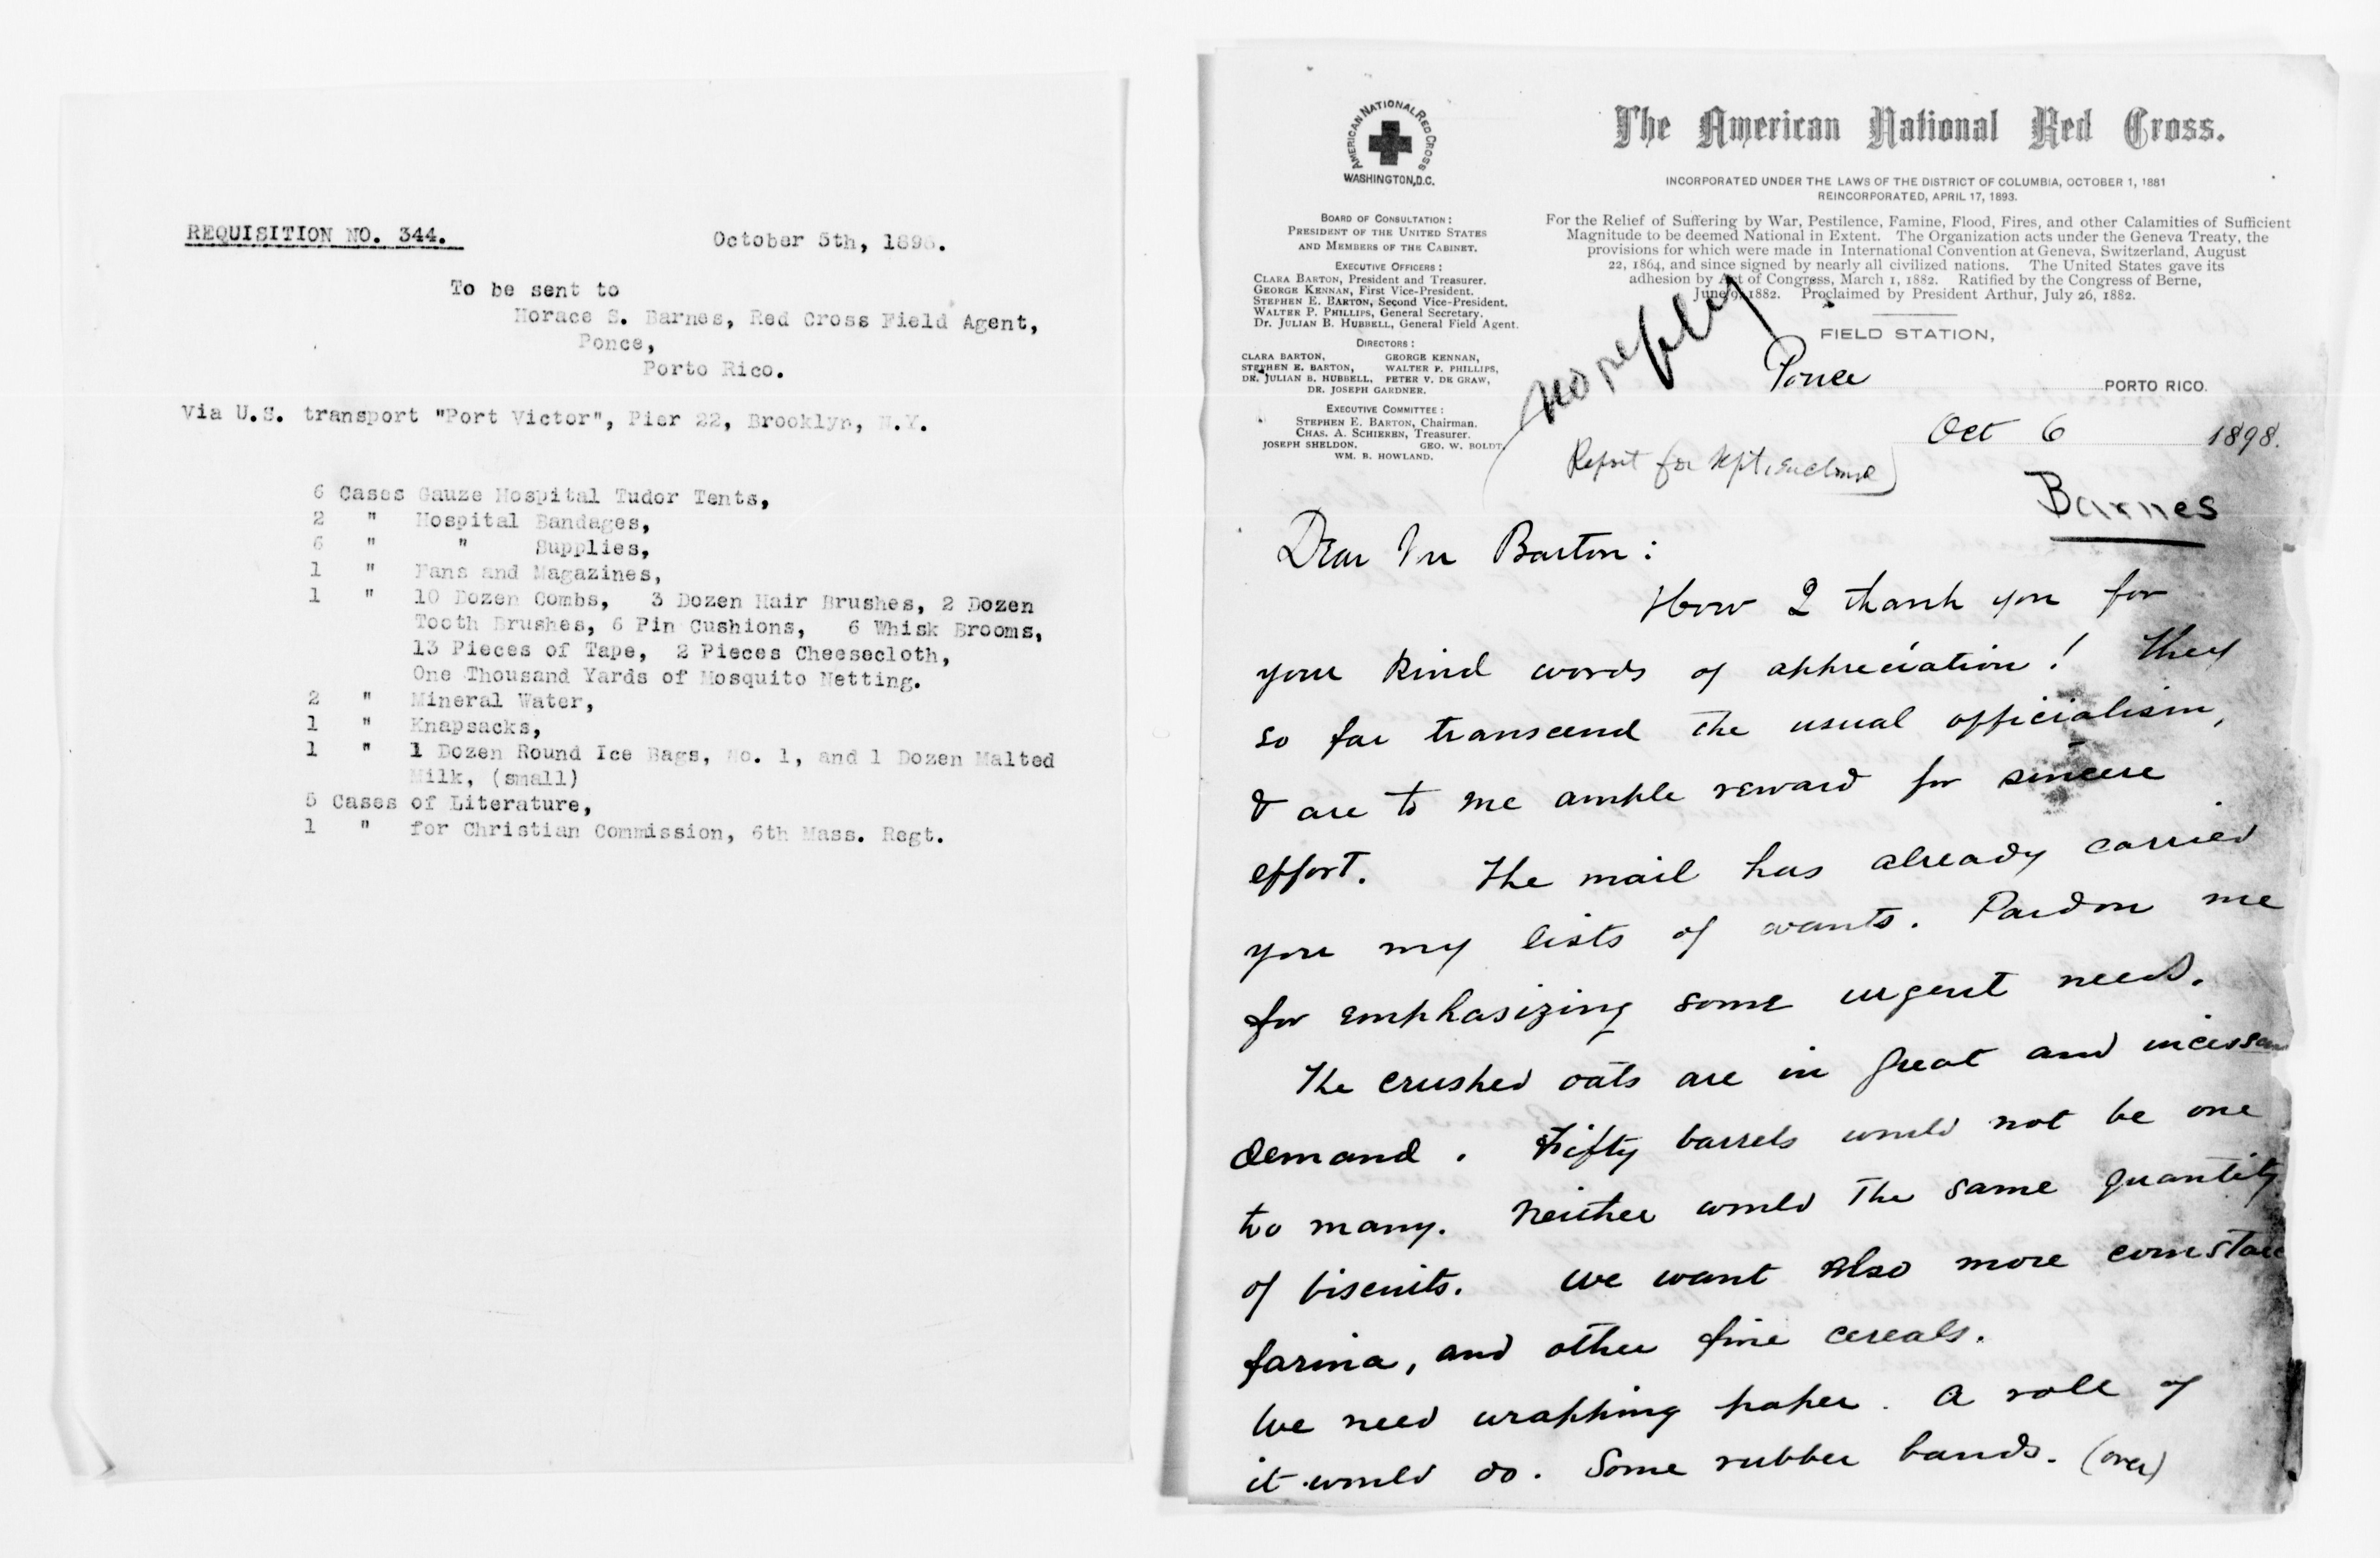 REQUISITION NO. 344.
October 5th, 1898.
To be sent to
Horace S. Barnes, Red Cross Field Agent,
Ponce,
Porto Rico.
Via U.S. transport "Port Victor", Pier 22, Brooklyn, N.Y.
6 Cases Gauze Hospital Tudor Tents,
2 " Hospital Bandages,
6 " " Supplies,
1 " Fans and Magazines,
1 " 10 Dozen Combs, 3 Dozen Hair Brushes, 2 Dozen
Tooth Brushes, 6 Pin Cushions, 6 Whisk Brooms,
13 Pieces of Tape, 2 Pieces Cheesecloth,
One Thousand Yards of Mosquito Netting.
2 " Mineral Water,
1 " Knapsacks,
1 " 1 Dozen Round Ice Bags, No. 1, and 1 Dozen Malted
Milk, (small)
5 Cases of Literature,
1 " for Christian Commission, 6th Mass. Regt.
AMERICAN NATIONAL RED CROSS
WASHINGTON, D.C.
BOARD OF CONSULTATION:
PRESIDENT OF THE UNITED STATES
AND MEMBERS OF THE CABINET.
EXECUTIVE OFFICERS:
CLARA BARTON, President and Treasurer.
GEORGE KENNAN, First Vice-President.
STEPHEN E. BARTON, Second Vice-President.
WALTER P. PHILLIPS, General Secretary.
Dr. JULIAN B. HUBBELL, General Field Agent.
DIRECTORS:
CLARA BARTON, GEORGE KENNAN,
STEPHEN E. BARTON, WALTER P. PHILLIPS,
DR. JULIAN B. HUBBELL, PETER V. DE GRAW,
DR. JOSEPH GARDNER.
EXECUTIVE COMMITTEE:
STEPHEN E. BARTON, Chairman.
CHAS. A. SCHIEREN, Treasurer.
JOSEPH SHELDON. GEO. W. BOLDT.
WM. B. HOWLAND.
The American National Red Cross.
INCORPORATED UNDER THE LAWS OF THE DISTRICT OF COLUMBIA, OCTOBER 1, 1881
REINCORPORATED, APRIL 17, 1893.
For the Relief of Suffering by War, Pestilence, Famine, Flood, Fires, and other Calamities of Sufficient
Magnitude to be deemed National in Extent. The Organization acts under the Geneva Treaty, the
provisions for which were made in International Convention at Geneva, Switzerland, August
22, 1864, and since signed by nearly all civilized nations. The United States gave its
adhesion by Act of Congress, March 1, 1882. Ratified by the Congress of Berne,
June 9, 1882. Proclaimed by President Arthur, July 26, 1882.
FIELD STATION,
No reply
Ponce PORTO RICO.
Oct 6 1898.
Report for Sept. enclosed
Barnes
Dear Mr Barton:
How I thank you for
your kind words of appreciation! They
so far transcend the usual officialism,
& are to me ample reward for sincere
effort. The mail has already carried
you my lists of wants. Pardon me
for emphasizing some urgent needs.
The crushed oats are in great and incessan
demand. Fifty barrels would not be one
too many. Neither would the same quantity
of biscuits. We want also more cornstarc
farina, and other fine cereals.
We need wrapping paper. A roll of
it would do. Some rubber bands. (over)